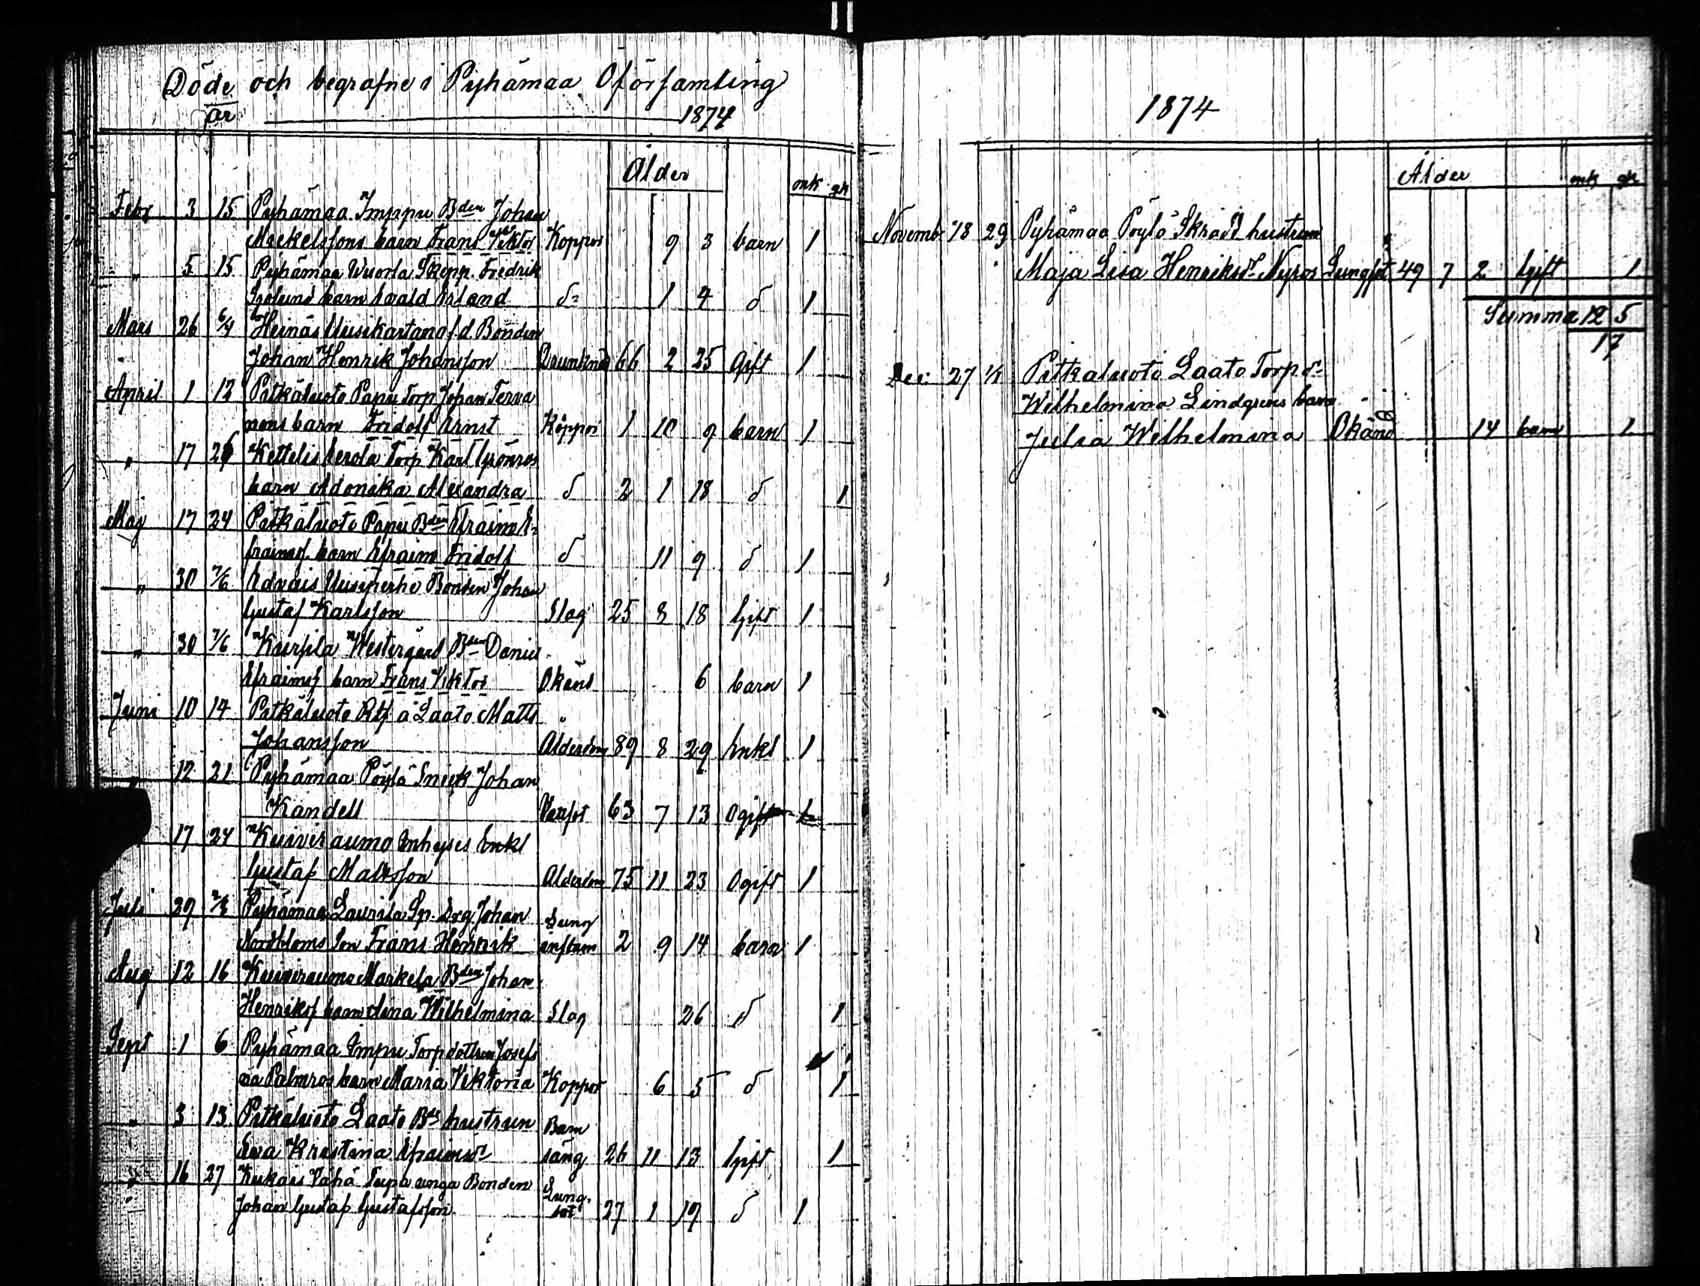 Döde och begrafne i Pyhämaa Cförsamling
år 1874
Ålder
mk qk
Febr 3 15 Pyhämaa Imppu Bden Johan
Mickelssons barn Frans Viktor Koppor 9 3 barn 1
" 5 15 Pyhämaa Wuorla Skepp. Fredrik
barn Erland d:o 1 4 d 1
Mars 26 6/4 Heinäs Uusikartano f.d. Bonden
Johan Henrik Johansson 66 2 25 Gift 1
April 1 12 Pitkäluoto Papu Torp Johan Terva
nens barn Fridolf Ernst Koppor 1 10 9 barn 1
" 17 26 Kettelis Torp Karl Grönros
barn Adonika Alexandra d 2 1 18 d 1
Maj 17 24 Pitkäluoto Papu Bden Efraim E-
fraimss. barn Efraim Fridolf d 11 9 d 1
" 30 7/6 Edväis Uusiperhe Bonden Johan
Gustaf Karlsson Slag 25 8 18 Gift 1
" 30 7/6 Kurpila Westergård Bden Daniel
Efraimss barn Frans Viktor Okänd 6 barn 1
Juni 10 14 Pitkäluoto å Laato Matts
Johansson Ålderdom 89 8 29 Enkl 1
" 12 21 Pyhämaa Pöylä Snick Johan
Kandell 63 7 13 Ogift
17 24 Kuivirauma Inhyses Enkl
Gustaf Mattsson Ålderdom 75 11 23 Ogift 1
Juli 29 2/8 Pyhämaa Laurila Sp. Drg. Johan Lung
Nordbloms son Frans Henrik inflam 2 9 14 barn 1
Aug 12 16 Kuivirauma Markela Bden Johan
Henrikss barn Lina Wilhelmina Slag 26 d 1
Sept 1 6 Pyhämaa Imppu Torp dottren Josefi
na Palmros barn Maria Viktoria Koppor 6 5 d 1
" 3 13 Pitkäluoto Laato Bds hustrun Barn
Eva Kristina Efraimsdr säng 26 11 13 Gift 1
" 16 27 Kukais Vähä Tupa unga Bonden Lung
Johan Gustaf Gustafsson sot 27 1 19 d 1
1874
Ålder mk qk
Novembr 18 29 Pyhämaa Pöylä Skradd hustrun
Maja Lisa Henriksdr Nyros Lungsot 49 7 2 Gift 1
Summa 12 5
17
Dec: 27 1/1 Pitkäluoto Laato Torp dr
Wilhelmina Lindgrens barn
Julia Wilhelmina Okänd 14 barn 1